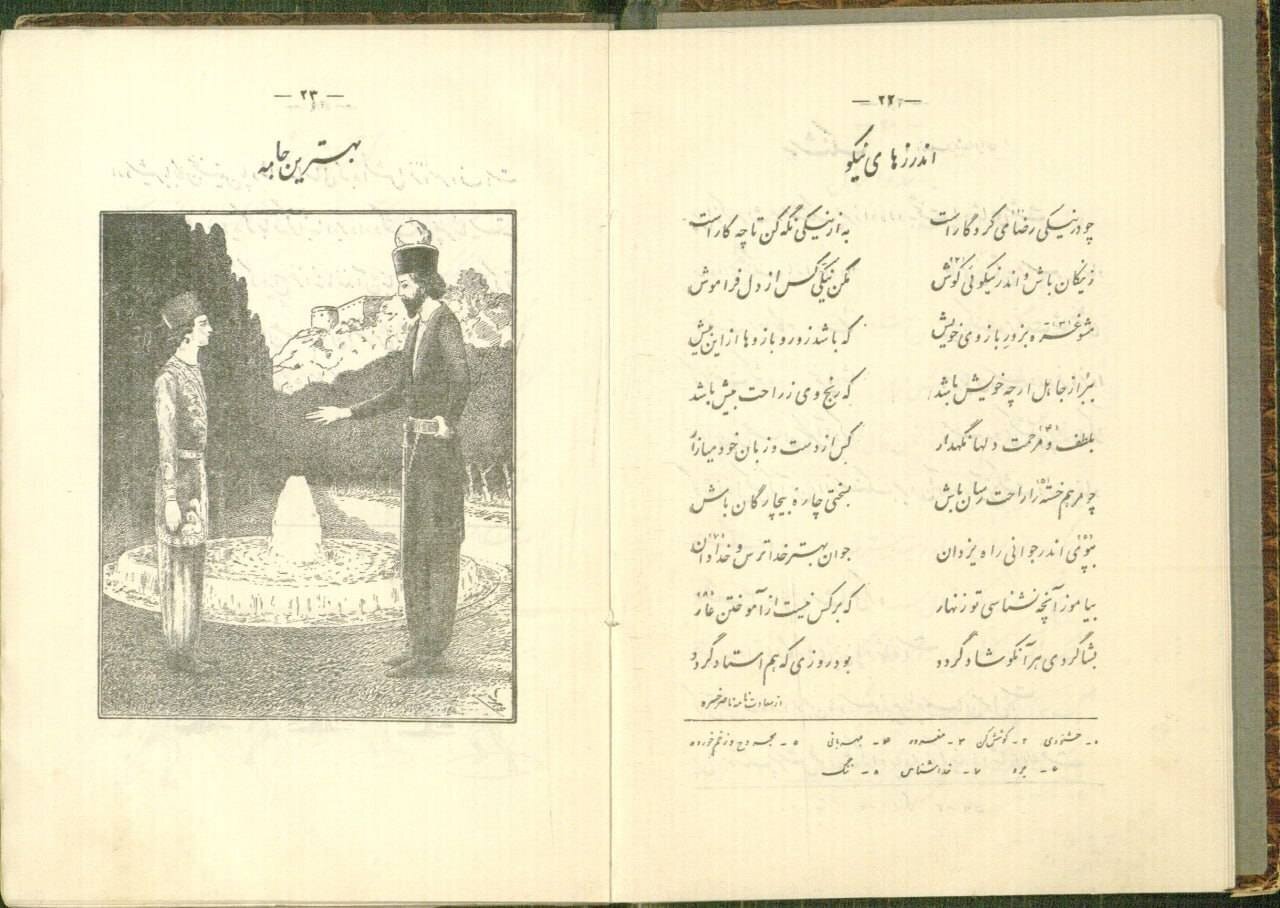 — ۲۲ —
اندرزهای نیکو
چو در نیکی رضای کردگار است به از نیکی نگه کن تا چه کار است
ز نیکان باش و اندر نیکوئی کوش مکن نیکی کس از دل فراموش
مشو غره بزور بازوی خویش که باشد زور و بازوها از این بیش
ببر از جاهل ار چه خویش باشد که رنج وی ز راحت بیش باشد
بلطف و مرحمت دلها نگهدار کس از دست و زبان خود میازار
چو مرهم خسته را راحت رسان باش بسختی چاره بیچارگان باش
بپوی اندر جوانی راه یزدان جوان بهتر خدا ترس و خدا دان
بیاموز آنچه نشناسی تو زنهار که بر کس نیست از آموختن عار
بشاگردی هر آنکو شاد گردد بود روزی که هم استاد گردد
از سعادت نامه ناصر خسرو
۱ـ خشنودی ۲ـ کوشش کن ۳ـ مغرور ۴ـ مهربانی ۵ـ مجروح و زخم خورده
۶ـ برو ۷ـ خداشناس ۸ـ ننگ
— ۲۳ —
بهترین جامه